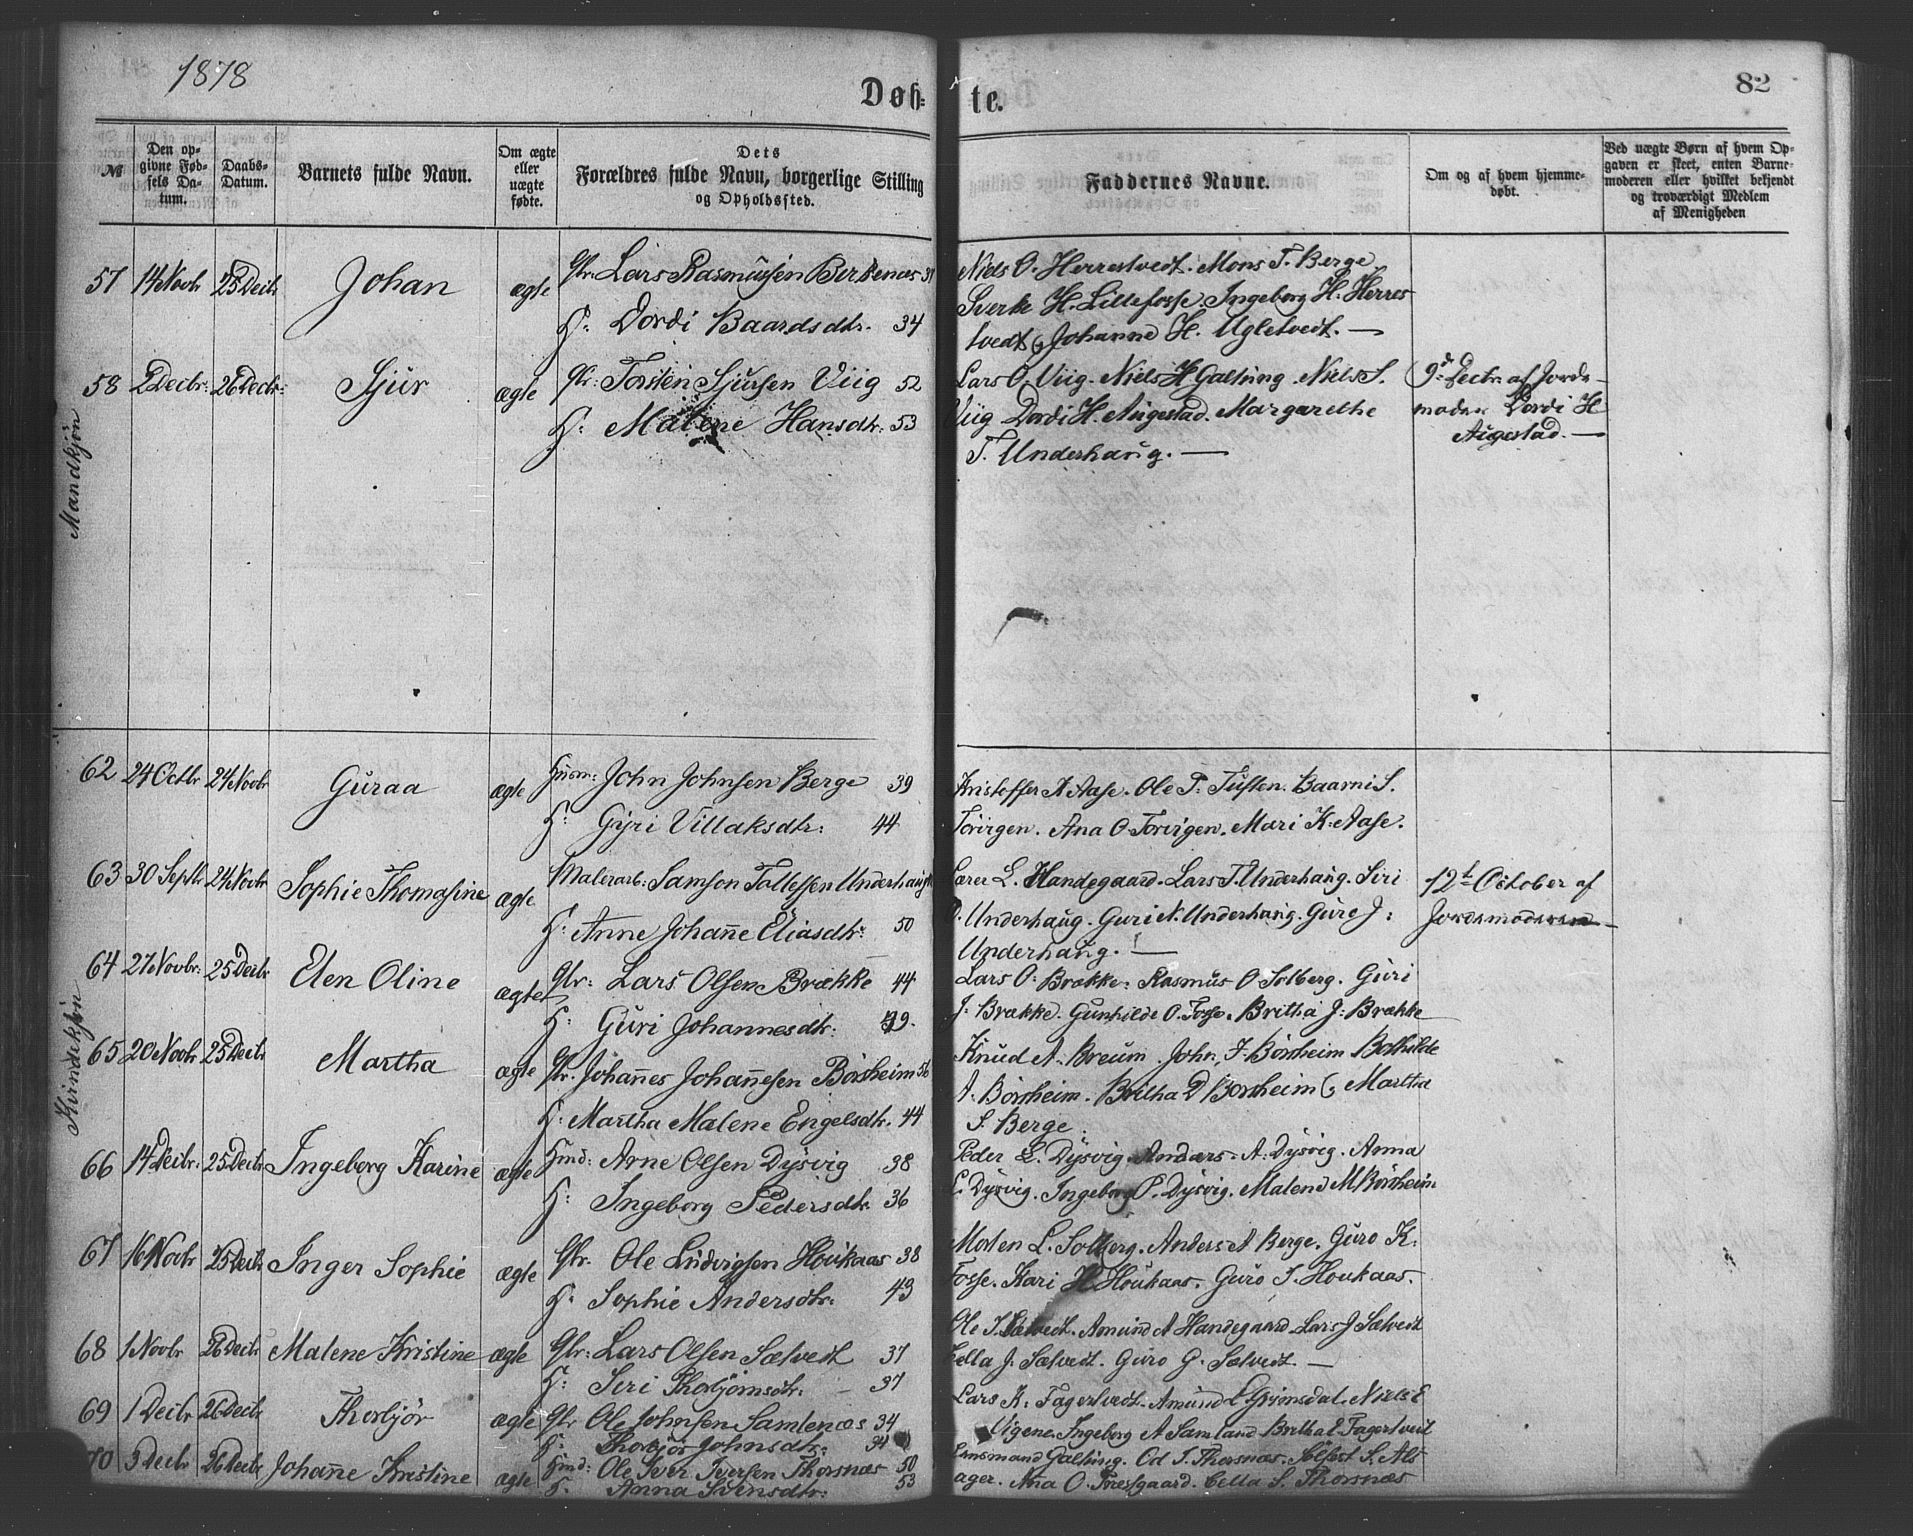 1878
Døb= te.
82
№
Den op-
givne Fød-
sels Da-
tum.
Daabs-
Datum.
Barnets fulde Navn.
Om ægte
eller
uægte
fødte.
Dets
Forældres fulde Navn, borgerlige Stilling
og Opholdssted.
Faddernes Navne.
Om og af hvem hjemme-
døbt.
Ved uægte Børn af hvem Op-
gaven er skeet, enten Barne-
moderen eller hvilket bekjendt
og troværdigt Medlem
af Menigheden
Mandkjøn
57 14 Novbr 25 Decbr Johan ægte Gbr: Lars Rasmussen Berkenæs
H: Dordi Baardsdtr. 34
Niels O. Herrestvedt. Mons T. Berge
Sverke H. Lillefosse. Ingeborg H. Herres
tvedt & Johanne H. Ugletvedt. —
58 2 Decbr: 26 Decbr: Sjur ægte Gbr: Torsten Sjursen Viig 52
H: Malene Hansdtr: 53
Lars O. Viig. Niels H Galtung. Niels S.
Viig Dordi H. Augestad. Margarethe
T. Underhaug. —
9d Decbr. af Jorde-
moder Dordi H
Augestad. —
Kvindekjøn
62 24 Octbr 24 Novbr Guraa ægte Husm: John Johnsen Berge 39
H: Gyri Villaksdtr: 44
Kristoffer A Aase. Ole T. Tuften. Baarni S.
Torirgen. Ana O. Torirgen. Mari K. Aase.
63 30 Septbr 24 Novbr Sophie Thomasine ægte Malerarb: Samson Tollefsen Underhaug
H: Anne Johanne Eliasdtr: 50
Lærer L. Handegaard. Lars T. Underhaug. Siri
Underhaug. Guri N. Underhaug. Guro J:
Underhaug. —
12t October af
Jordemoderen —
64 27 Novbr: 25 Decbr Elen Oline ægte Gbr: Lars Olsen Brække 44
H: Guri Johannesdtr: 39.
Lars O. Brække. Rasmus O Solberg. Guri
J. Brække. Gunhilde O. Fosse. Britha J: Brække
65 20 Novbr 25 Decbr Martha ægte Gbr. Johannes Johannesen Börsheim 56
H: Martha Malene Engelsdtr. 44
Knud A. Breum. John J. Börsheim Bothilde
A. Börsheim. Britha D Borsheim & Martha
S. Berge.
66 14 Decbr. 25 Decbr Ingeborg Karine ægte Hmd: Arne Olsen Dysvig 38
H: Ingeborg Pedersdtr. 36
Peder L. Dysvig Anders A. Dysvig. Anna
L. Dysvig. Ingeborg P. Dysvig. Malene M Börsheim
67 16 Novbr 25 Decbr Inger Sophie ægte Gbr. Ole Ludvigsen Houkaas 38
H. Sophie Andersdtr. 43
Morten L. Solberg. Anders A Berge. Guro K.
Fosse. Kari H Houkaas. Guro J. Houkaas.
68 1 Novbr 26 Decbr Malene Kristine ægte Gbr: Lars Olsen Sætvedt 37
H: Siri Thorbjörnsdtr. 37
Ole J. Sætvedt. Amund A Handegaard. Lars J Sætvedt
Cella J. Sætvedt. Guro G. Sætvedt. —
69 1 Decbr 26 Decbr Thorbjör ægte Gbr Ole Johnsen Samlenæs 34
H: Thorbjör Johnsdtr: 34
Lars K. Fagertvedt. Amund L Grimsdal. Niels E
Vigene. Ingeborg A Samland Britha E. Fagertveit
70 3 Decbr 26 Decbr Johanne Kristine ægte Hmd: Ole Iver Iversen Thorsnæs 50
H. Anna Svensdtr: 53
Lensmand Galtung. Od I. Thorsnæs. Sölfest S. Als
ager. Ana O. Tnesgaard. Cella S. Thorsnæs